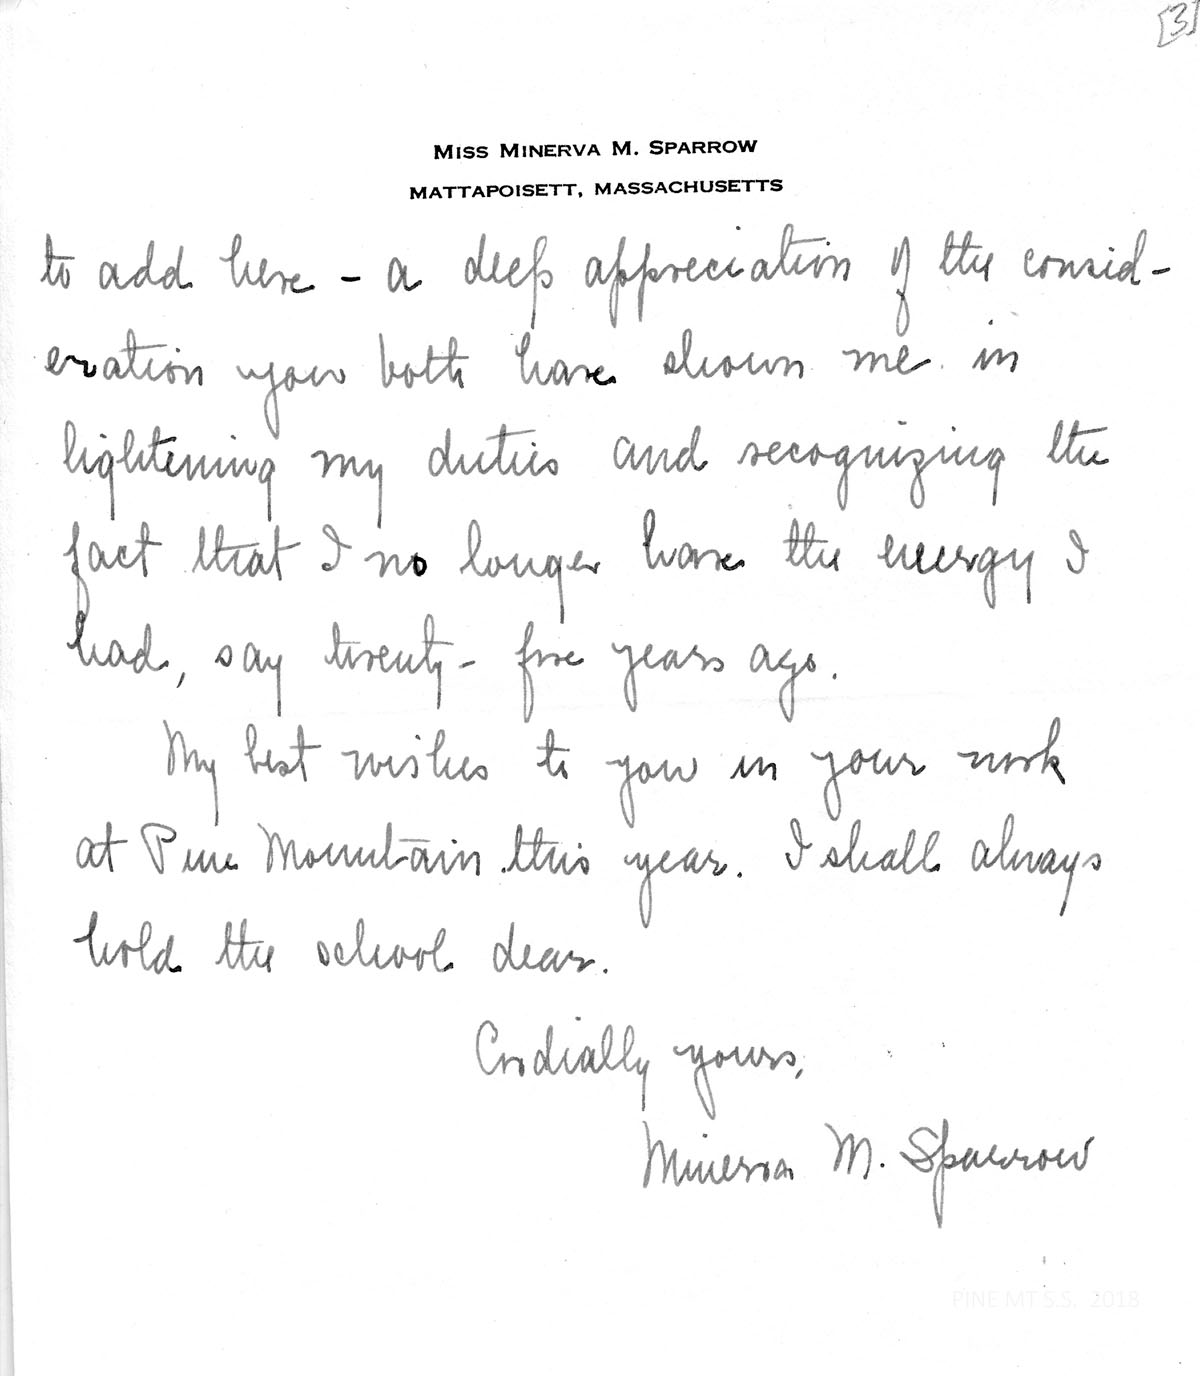 [3]
MISS MINERVA M. SPARROW
MATTAPOISETT, MASSACHUSETTS
to add here - a deep appreciation of the consid-
eration you both have shown me in
lightening my duties and recognizing the
fact that I no longer have the energy I
had, say twenty-five years ago.
My best wishes to you in your work
at Pine Mountain this year. I shall always
hold the school dear.
Cordially yours,
Minerva M. Sparrow
PINE MT S.S. 2018